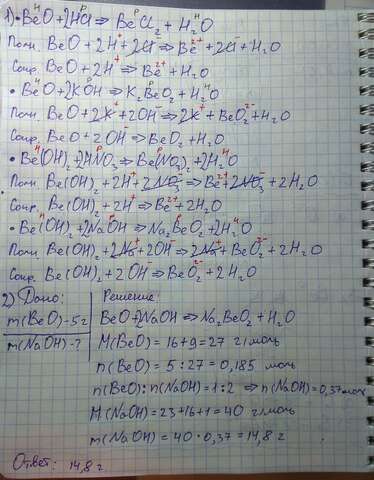 1) • BeO + 2HCl ⇒ BeCl₂ + H₂O
Полн. BeO + 2H⁺ + 2Cl⁻ ⇒ Be²⁺ + 2Cl⁻ + H₂O
Сокр. BeO + 2H⁺ ⇒ Be²⁺ + H₂O
• BeO + 2KOH ⇒ K₂BeO₂ + H₂O
Полн. BeO + 2K⁺ + 2OH⁻ ⇒ 2K⁺ + BeO₂²⁻ + H₂O
Сокр. BeO + 2OH⁻ ⇒ BeO₂²⁻ + H₂O
• Be(OH)₂ + 2HNO₃ ⇒ Be(NO₃)₂ + 2H₂O
Полн. Be(OH)₂ + 2H⁺ + 2NO₃⁻ ⇒ Be²⁺ + 2NO₃⁻ + 2H₂O
Сокр. Be(OH)₂ + 2H⁺ ⇒ Be²⁺ + 2H₂O
• Be(OH)₂ + 2NaOH ⇒ Na₂BeO₂ + 2H₂O
Полн. Be(OH)₂ + 2Na⁺ + 2OH⁻ ⇒ 2Na⁺ + BeO₂²⁻ + 2H₂O
Сокр. Be(OH)₂ + 2OH⁻ ⇒ BeO₂²⁻ + 2H₂O
2) Дано:
m(BeO) - 5 г
m(NaOH) - ?
Решение:
BeO + 2NaOH ⇒ Na₂BeO₂ + H₂O
M(BeO) = 16 + 9 = 27 г/моль
n(BeO) = 5 : 27 = 0,185 моль
n(BeO) : n(NaOH) = 1 : 2 ⇒ n(NaOH) = 0,37 моль
M(NaOH) = 23 + 16 + 1 = 40 г/моль
m(NaOH) = 40 · 0,37 = 14,8 г
Ответ: 14,8 г